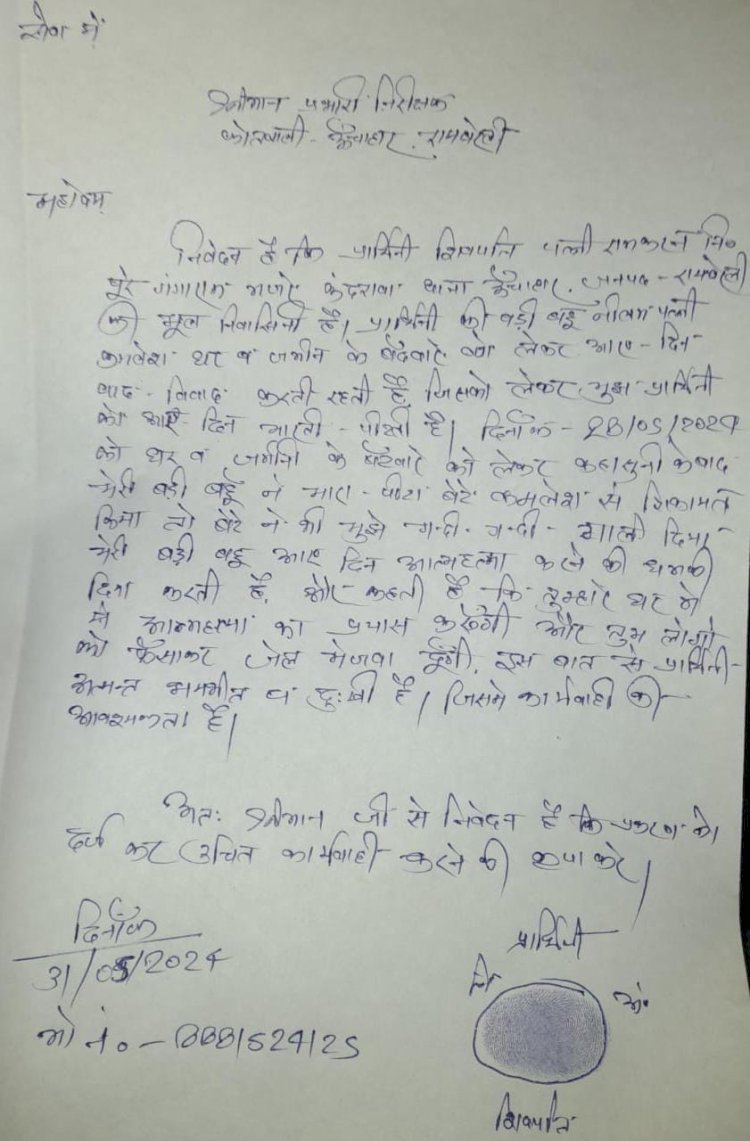 सेवा में
श्रीमान प्रभारी निरीक्षक
कोतवाली - ऊँचाहार, रायबरेली
महोदय,
निवेदन है कि प्रार्थिनी शिवपति पत्नी रामकरन नि०
पूरे गंगाराम मजरे कंदरावा थाना ऊँचाहार, जनपद - रायबरेली
की मूल निवासिनी है। प्रार्थिनी की बड़ी बहू नीलम पत्नी
कमलेश घर व जमीन के बंटवारे को लेकर आए - दिन
वाद - विवाद करती रहती है, जिसको लेकर मुझ प्रार्थिनी
को आए दिन मारती - पीटती है। दिनाँक - 28/05/2024
को घर व जमीनी के बंटवारे को लेकर कहासुनी के बाद
मेरी बड़ी बहू ने मारा - पीटा बेटे कमलेश से शिकायत
किया तो बेटे ने भी मुझे गन्दी - गन्दी - गाली दिया
मेरी बड़ी बहू आए दिन आत्महत्या करने की धमकी
दिया करती है, और कहती है कि तुम्हारे घर में
मैं आत्महत्या का प्रयास करूँगी और तुम लोगों
को फँसाकर जेल भेजवा दूँगी, इस बात से प्रार्थिनी
अत्यन्त भयभीत व दुःखी है। जिसमे कार्यवाही की
आवश्यकता है।
अतः श्रीमान जी से निवेदन है कि प्रकरण को
दर्ज कर उचित कार्यवाही करने की कृपा करे।
दिनाँक
31/05/2024
प्रार्थिनी
नि० अं०
मो नं० -
शिवपति